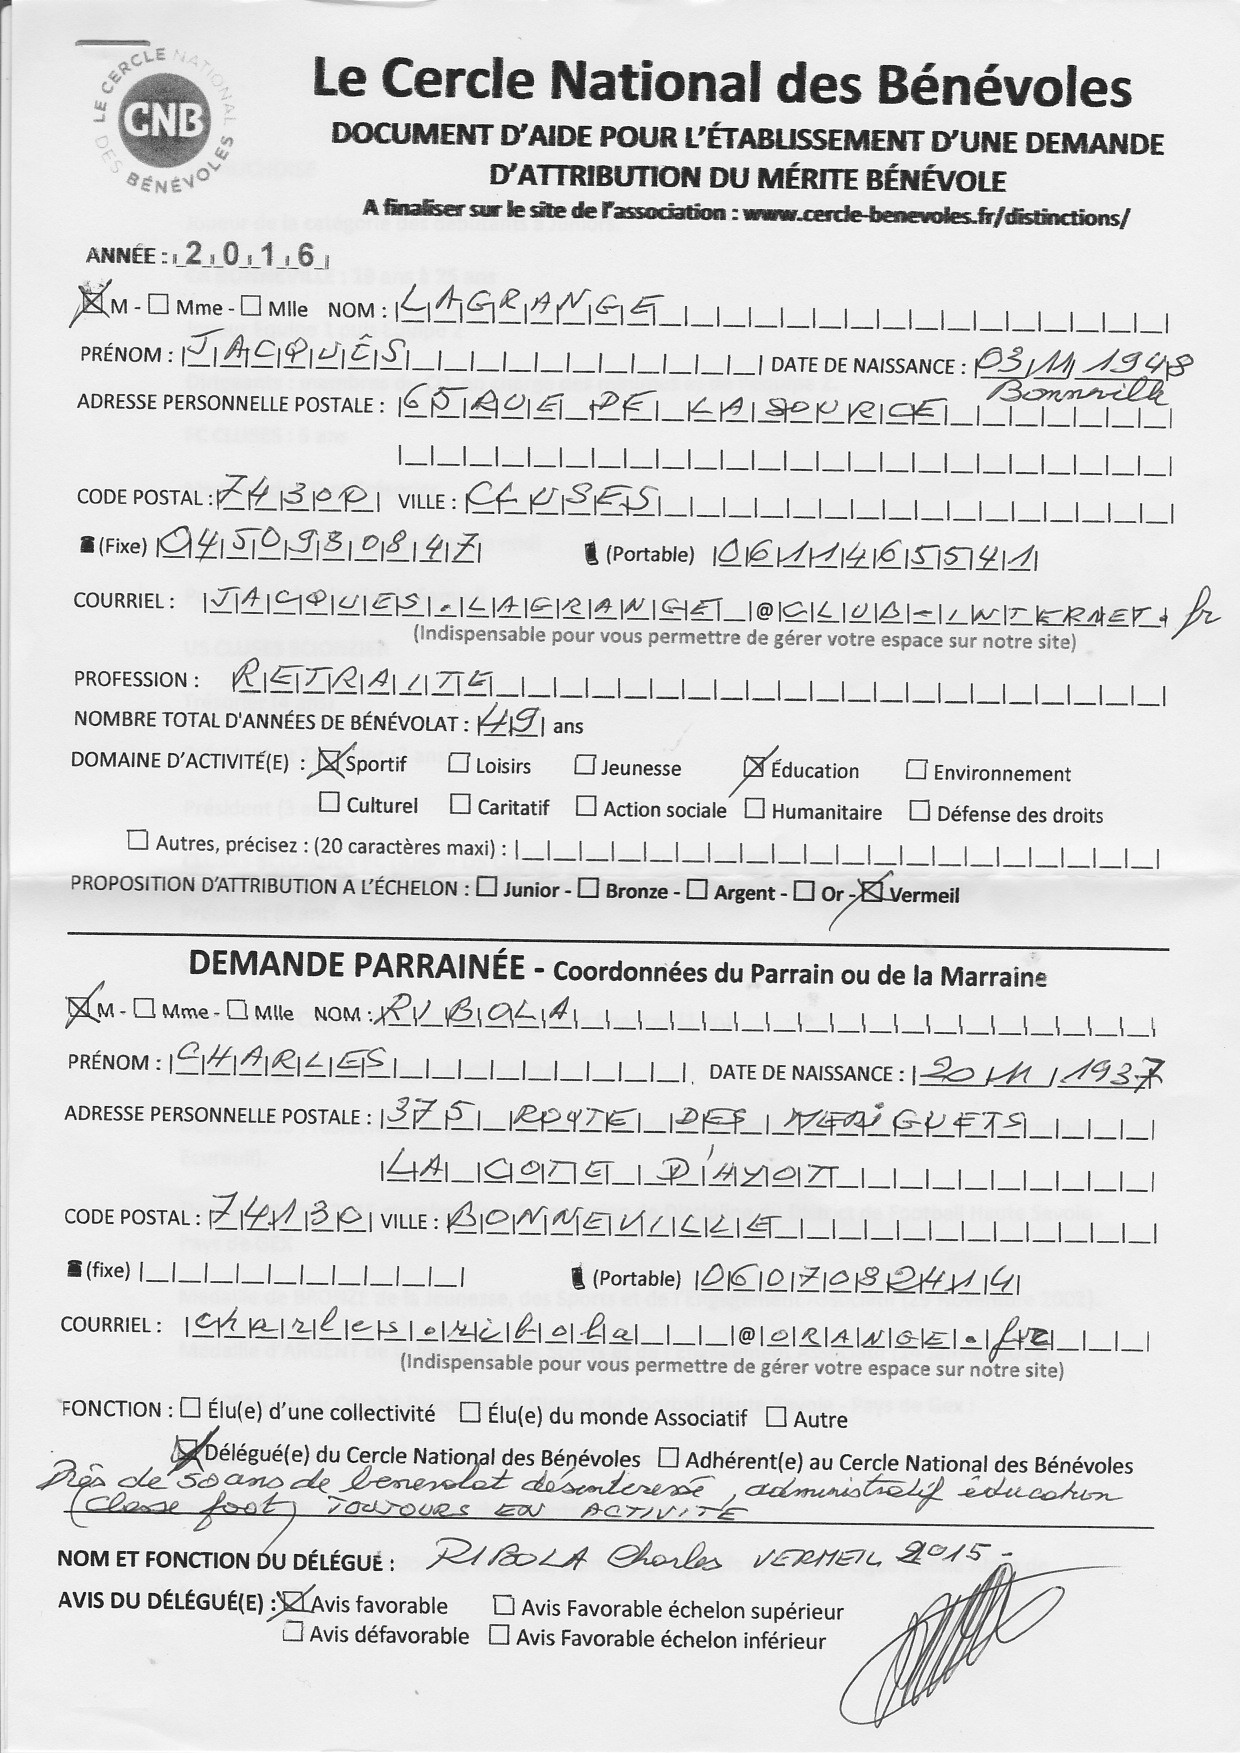 LE CERCLE NATIONAL DES BÉNÉVOLES
CNB
Le Cercle National des Bénévoles
DOCUMENT D'AIDE POUR L'ÉTABLISSEMENT D'UNE DEMANDE
D'ATTRIBUTION DU MÉRITE BÉNÉVOLE
A finaliser sur le site de l'association : www.cercle-benevoles.fr/distinctions/
ANNÉE : 2016
☒ M - ☐ Mme - ☐ Mlle NOM : LAGRANGE
PRÉNOM : JACQUES DATE DE NAISSANCE : 03 11 1948
Bonneville
ADRESSE PERSONNELLE POSTALE : 65 RUE DE LA
CODE POSTAL : 74300 VILLE : CLUSES
(Fixe) 0450980847 (Portable) 0611465541
COURRIEL : JACQUES.LAGRANGE @CLUB-INTERNET.fr
(Indispensable pour vous permettre de gérer votre espace sur notre site)
PROFESSION : RETRAITE
NOMBRE TOTAL D'ANNÉES DE BÉNÉVOLAT : 49 ans
DOMAINE D'ACTIVITÉ(E) : ☒ Sportif ☐ Loisirs ☐ Jeunesse ☒ Éducation ☐ Environnement
☐ Culturel ☐ Caritatif ☐ Action sociale ☐ Humanitaire ☐ Défense des droits
☐ Autres, précisez : (20 caractères maxi) :
PROPOSITION D'ATTRIBUTION A L'ÉCHELON : ☐ Junior - ☐ Bronze - ☐ Argent - ☐ Or - ☒ Vermeil
DEMANDE PARRAINÉE - Coordonnées du Parrain ou de la Marraine
☒ M - ☐ Mme - ☐ Mlle NOM : RIBOLA
PRÉNOM : CHARLES DATE DE NAISSANCE : 20 11 1937
ADRESSE PERSONNELLE POSTALE : 375 ROUTE DES
LA COTE D'HYOT
CODE POSTAL : 74130 VILLE : BONNEVILLE
(fixe) (Portable) 0607082414
COURRIEL : charles.ribola @ORANGE.fr
(Indispensable pour vous permettre de gérer votre espace sur notre site)
FONCTION : ☐ Élu(e) d'une collectivité ☐ Élu(e) du monde Associatif ☐ Autre
☒ Délégué(e) du Cercle National des Bénévoles ☐ Adhérent(e) au Cercle National des Bénévoles
Près de 50 ans de benevolat désinteressé, administratif éducation
(classe foot) TOUJOURS EN ACTIVITE
NOM ET FONCTION DU DÉLÉGUÉ : RIBOLA Charles VERMEIL 2015 -
AVIS DU DÉLÉGUÉ(E) : ☒ Avis favorable ☐ Avis Favorable échelon supérieur
☐ Avis défavorable ☐ Avis Favorable échelon inférieur